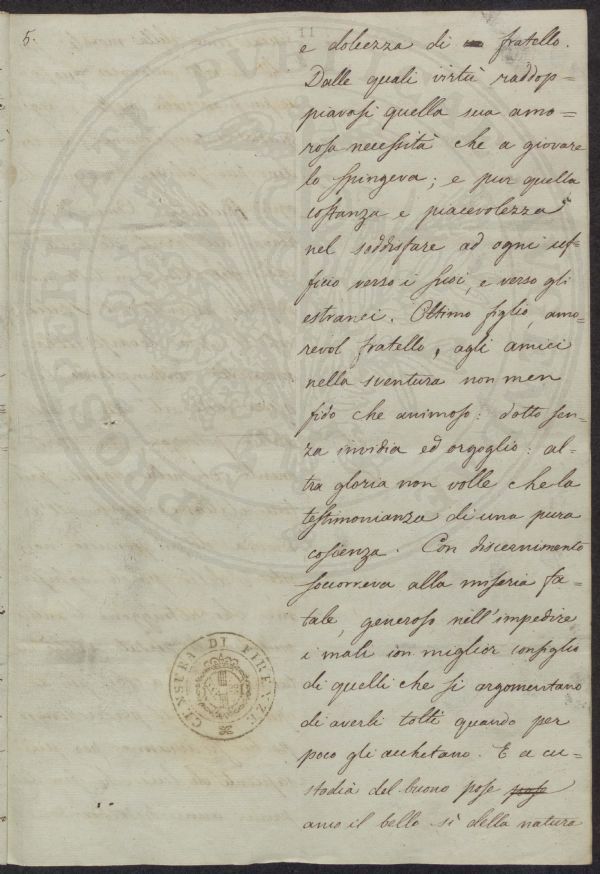 5.
e dolcezza di fratello.
Dalle quali virtù raddop=
piavasi quella sua amo=
rosa necessità che a giovare
lo spingeva; e pur quella
costanza e piacevolezza
nel soddisfare ad ogni uf=
ficio verso i suoi, e verso gli
estranei. Ottimo figlio, amo=
revol fratello, agli amici
nella sventura non men
fido che animoso: dotto sen=
za invidia ed orgoglio: al=
tra gloria non volle che la
testimonianza di una pura
cosienza. Con discernimento
soccorreva alla miseria fa=
tale, generoso nell'impedire
i mali con miglior consiglio
di quelli che si argomentano
di averli tolti quando per
poco gli acchetano. E a cu=
stodia del buono pose pose
anco il bello sì della natura
CENSURA DI FIRENZE